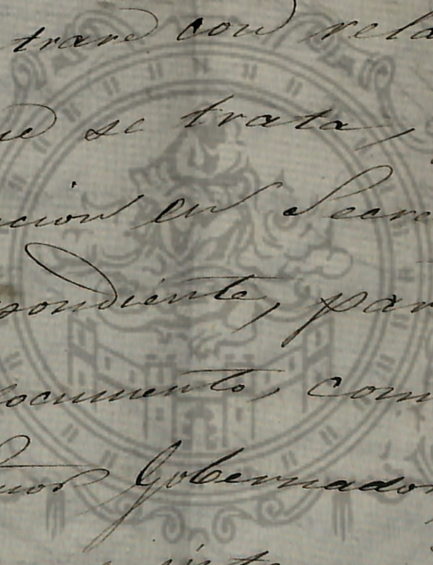 trare con rela
ue se trata,
cion en Secre
pondiente, par
documento, com
Gobernador